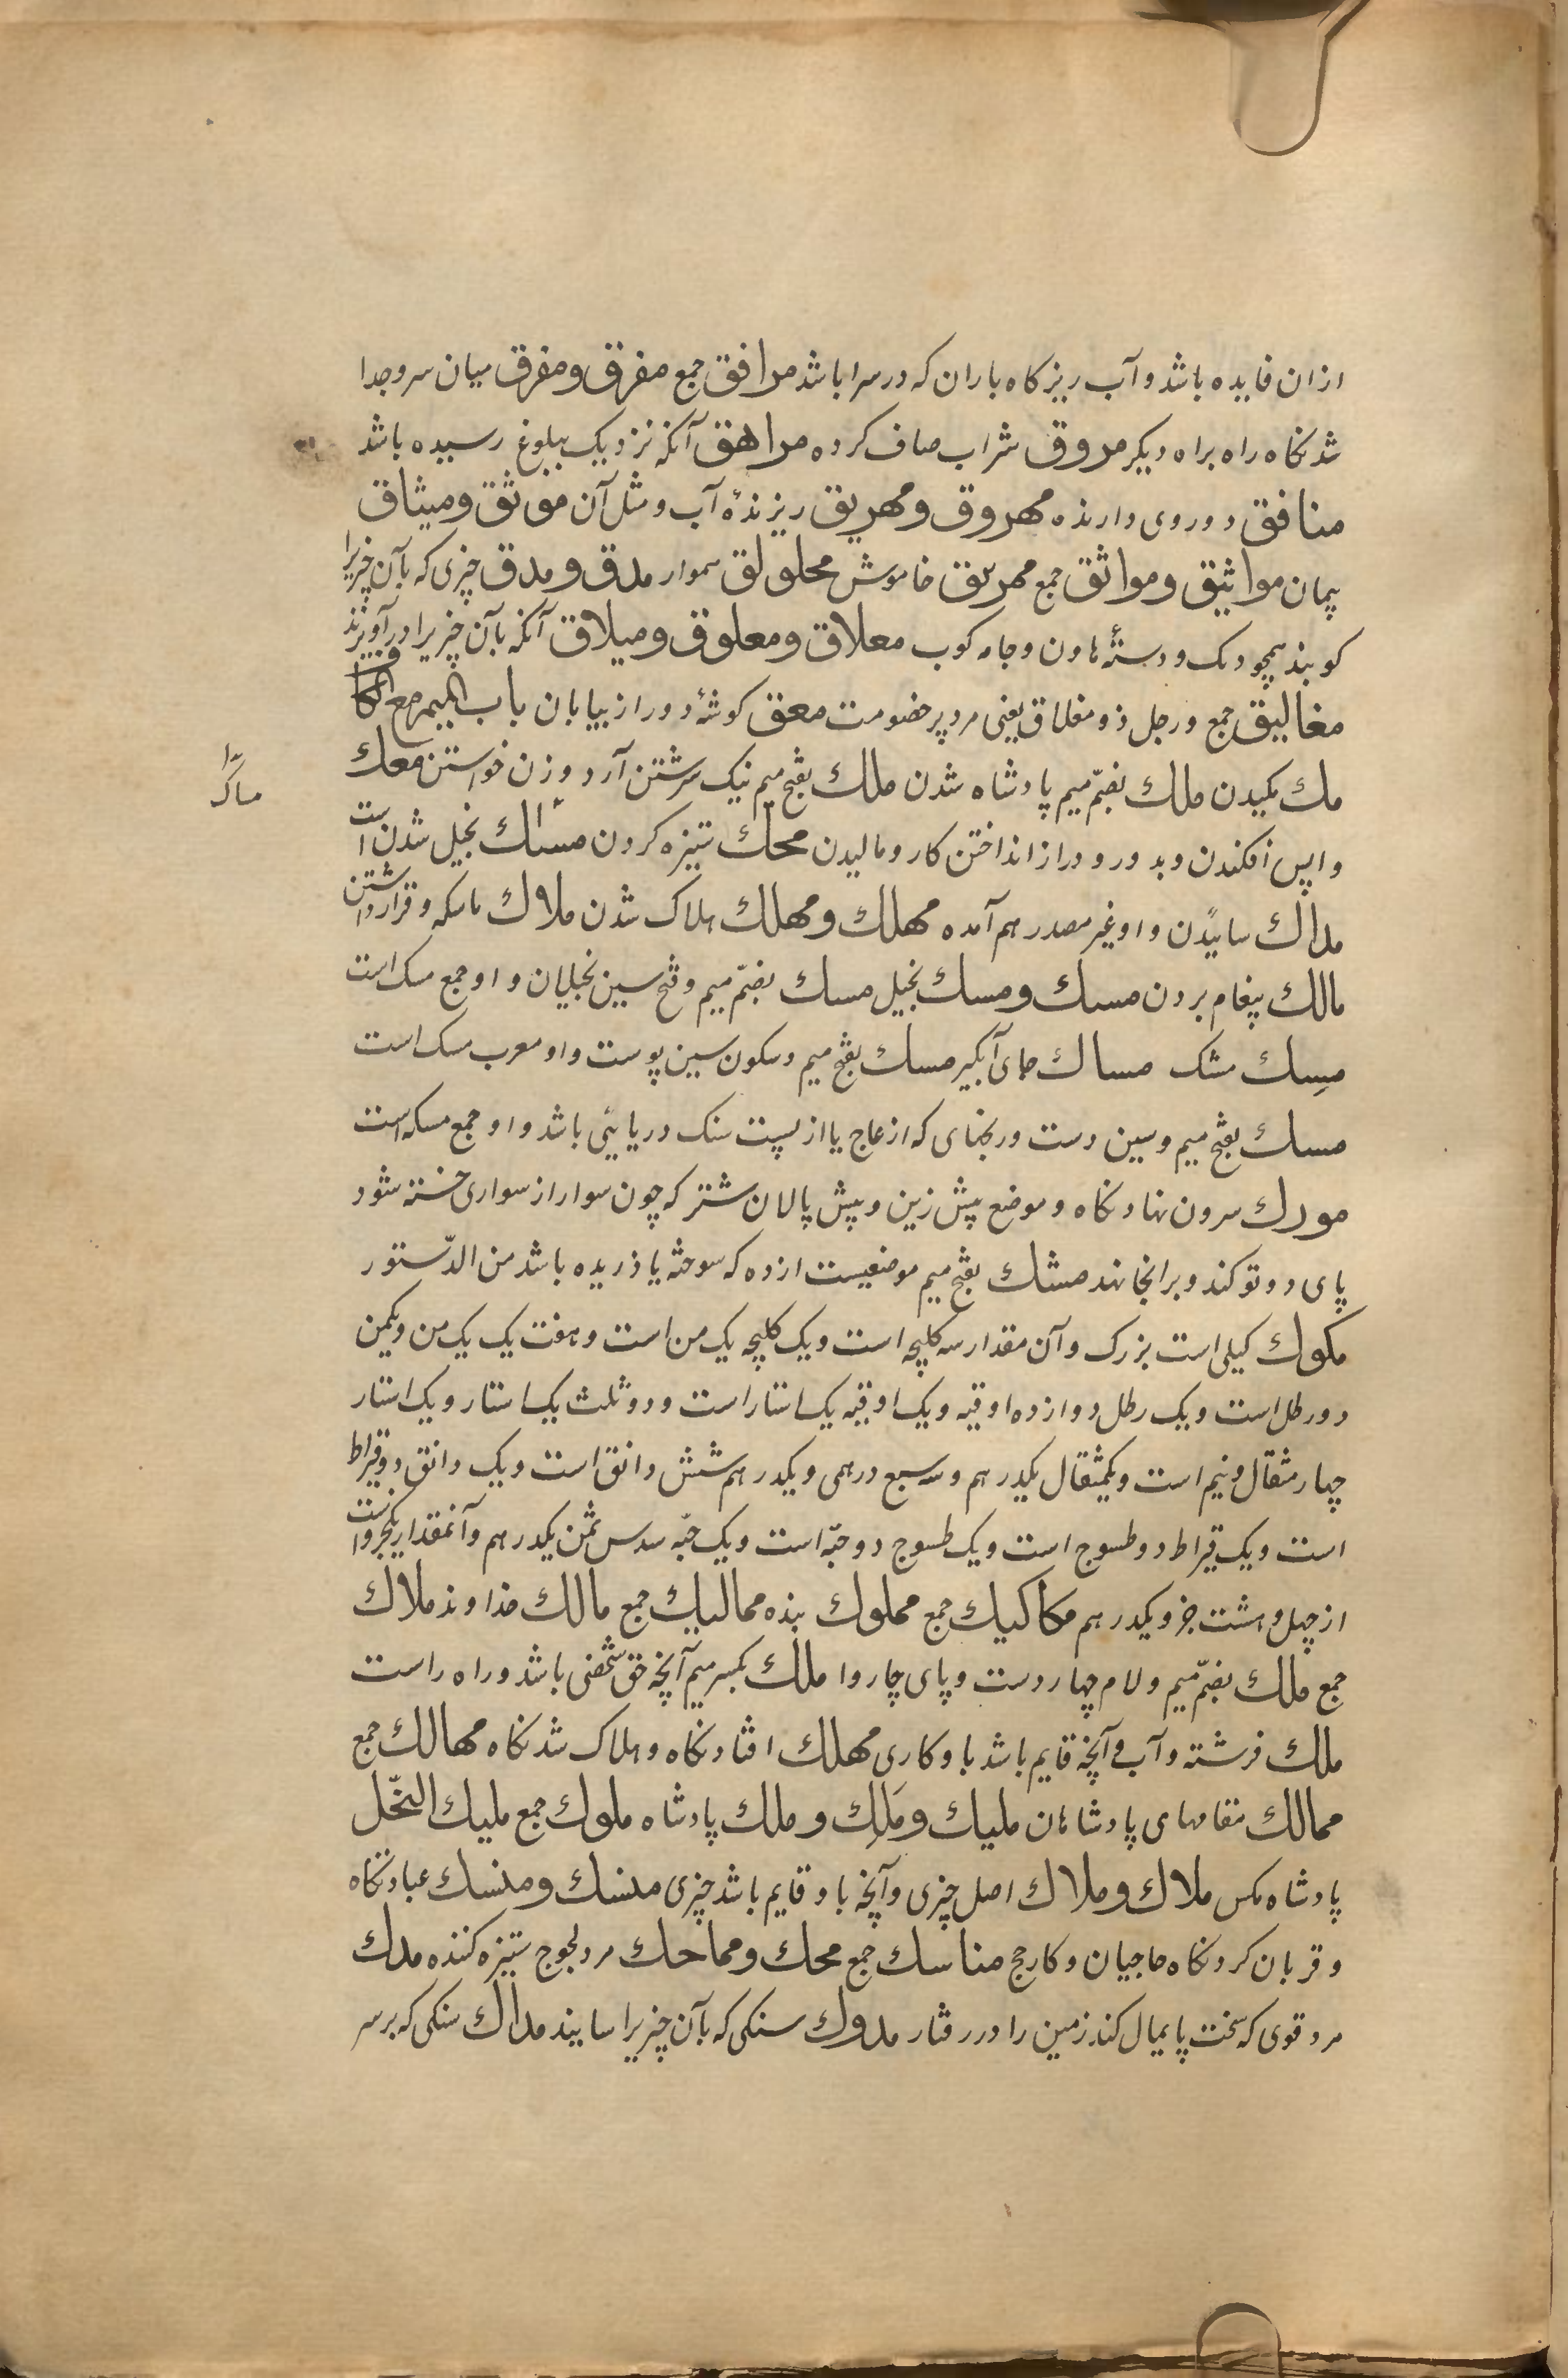 ازان فایده باشد و آب ریزکاه باران که در سرا باشد مرافق جمع مفرق و مفرق میان سر و جدا
شدنکاه راه براه دیکر مروق شراب صاف کرده مراهق آنکه نزدیک ببلوغ رسیده باشد
منافق دو روی دارنده مهروق و مهریق ریزندهٔ آب و مثل آن موثق و میثاق
پیمان مواثیق و مواثق جمع مهریق خاموش محلولق هموار مدق و مدق چیزی که بآن چیزیرا
کوبند همچو دنک و دستهٔ هاون و جامه کوب معلاق و معلوق و میلاق آنکه بآن چیزیرا درآویزند
مغالیق جمع و رجل ذو مغلاق یعنی مرد پر خصومت معق کوشهٔ دور از بیابان باب المیم مع الکاف
مك مکیدن ملك بضمّ میم پادشاه شدن ملك بفتح میم نیک سرشتن آرد و زن خواستن معك
واپس افکندن وبدور و دراز انداختن کار و مالیدن محك ستیزه کردن مساك بخیل شدن است
مداك سایٔدن و او غیر مصدر هم آمده مهلك و مهلك هلاک شدن ملاك ماسکه و قرار داشتن
مالك پیغام بردن مسك و مسك بخیل مسك بضمّ میم و فتح سین بخیلان و او جمع مسک است
مِسك مشک مساك جای آبکیر مسك بفتح میم و سکون سین پوست و او معرب مسک است
مسك بفتح میم و سین دست ورنجنهای که از عاج یا از پست سنک دریایٔی باشد و او جمع مسکه است
مورك سرون نهادنکاه و موضع پیش زین و پیش پالان شتر که چون سوار از سواری خسته شود
پای دوتو کند و برانجا نهد مشك بفتح میم موضعیست ازده که سوخته یا ذریده باشد من الدّستور
مکوك کیلی است بزرک و آن مقدار سه کلیچه است و یک کلیچه یک من است و هفت یک یک من و یکمن
دو رطل است و یک رطل دوازده اوقیه و یک اوقیه یک استار است و دو ثلث یک استار و یک استار
چهار مثقال و نیم است و یکمثقال یکدرهم و سه سبع درهمی و یکدرهم شش دانق است و یک دانق دو قیراط
است و یک قیراط دو طسوج است و یک طسوج دو حبّه است و یک حبّه سدس ثمن یکدرهم و آنمقدار یکجزو است
از چهل و هشت جزو یکدرهم مکاکیك جمع مملوك بنده ممالیك جمع مالك خداوند ملاك
جمع ملك بضمّ میم و لام چهار دست و پای چاروا ملك بکسر میم آنچه حق شخصی باشد و راه راست
ملك فرشته و آب و آنچه قایم باشد با و کاری مهلك افتادنکاه و هلاک شدنکاه مهالك جمع
ممالك مقامهای پادشاهان ملیك و مَلِك و ملك پادشاه ملوك جمع ملیك النّحل
پادشاه مکس ملاك و ملاك اصل چیزی و آنچه با و قایم باشد چیزی منسك و منسك عبادتکاه
و قربان کردنکاه حاجیان و کار حج مناسك جمع محك و مماحك مرد لجوج ستیزه کننده مدك
مرد قوی که سخت پایمال کند زمین را در رفتار مدوك سنکی که بآن چیزیرا سایند مداك سنکی که بر سر